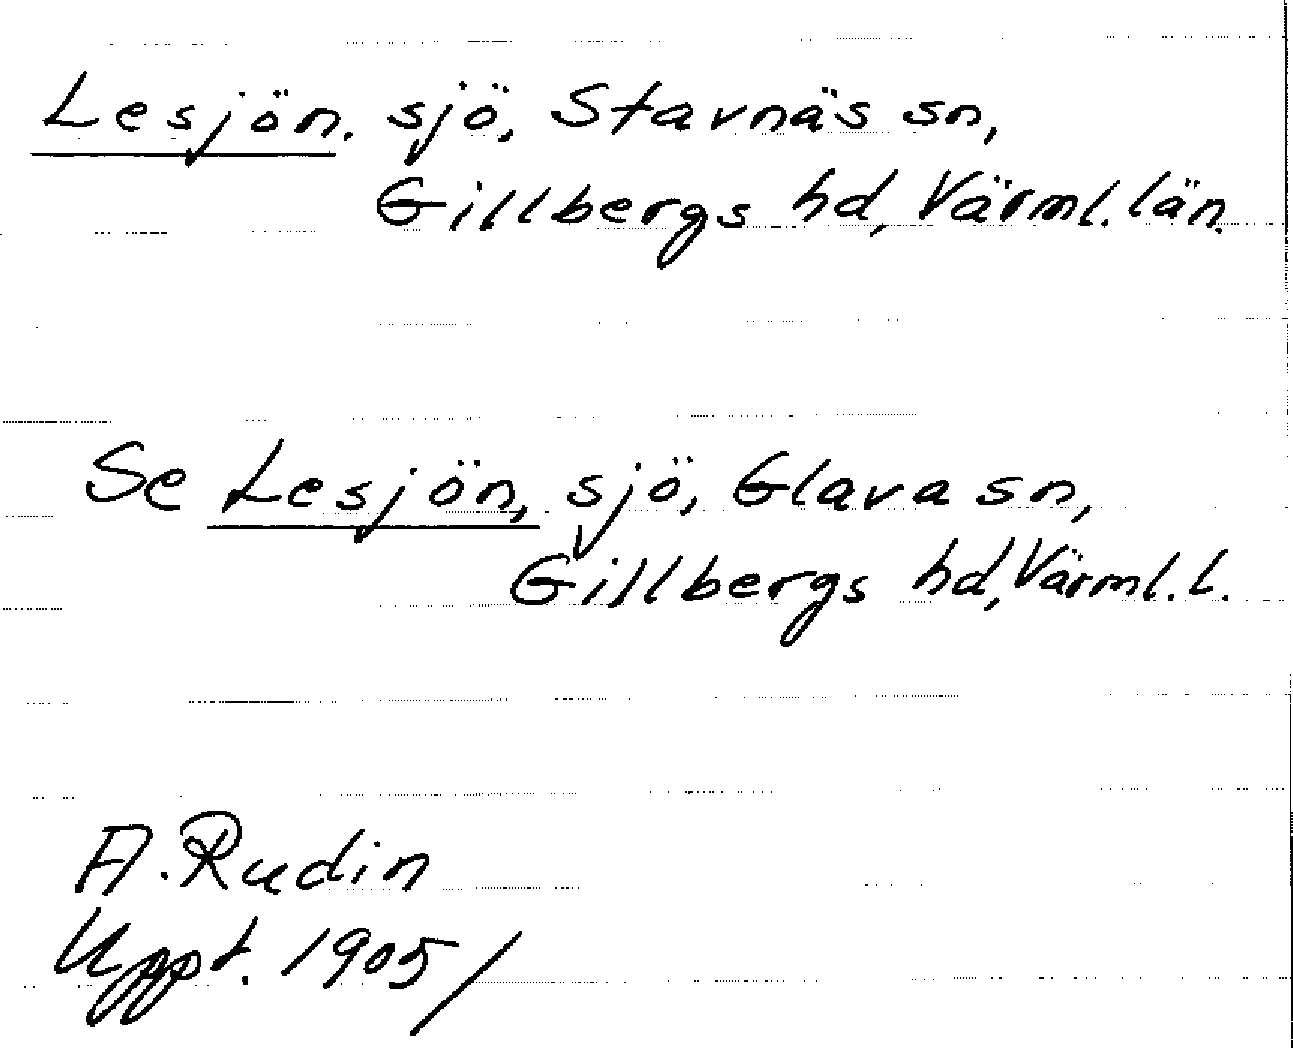 Lesjön. sjö, Stavnäs sn,
Gillbergs hd, Värml. län.
Se Lesjön, sjö, Glava sn,
Gillbergs hd, Värml. l.
A. Rudin
Uppt. 1905/